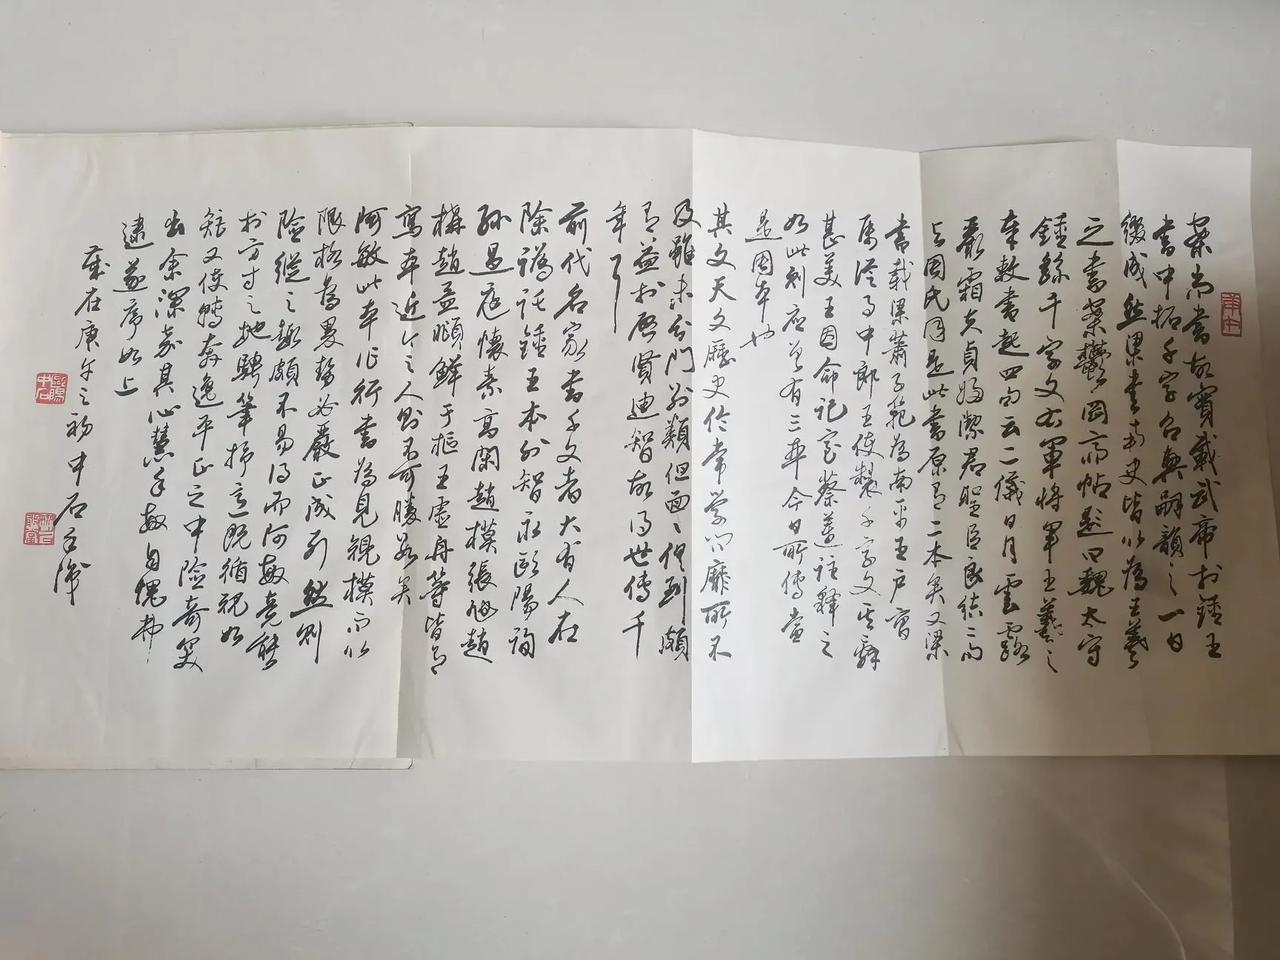 案尚書故實載武帝於鍾王
書中拓千字召興嗣韻之一日
綴成然梁書南史皆以為王羲
之書
鍾繇千字文右軍將軍王羲之
奉敕書起四句云二儀日月雲露
嚴霜夫貞婦潔君聖臣良結二句
與周氏同是此書原有二本矣又梁
書載梁蕭子範為南平王戶曹
屬從事中郎王使製千字文其辭
甚美王因命記室蔡薳註釋之
如此則應曾有三本今日所傳當
是周本也
其文天文歷史倫常學問靡所不
及雖未分門別類但面面俱到頗
有益於啟賢迪智故得世傳千
年
前代名家書千文者大有人在
除偽託鍾王本外智永歐陽詢
孫過庭懷素高閑趙模張旭趙
構趙孟頫鮮于樞王虛舟等皆有
寫本近今之人則不可勝數矣
阿敏此本作行書為見規模而以
限格為界務必嚴正成列然則
險縱之趣頗不易得而阿敏竟能
於方寸之地騁筆抒意既循規如
矩又使轉奔逸平正之中險奇突
出余深嘉其心慧手敏自愧弗
逮遂序如上
歲在庚午之初中石